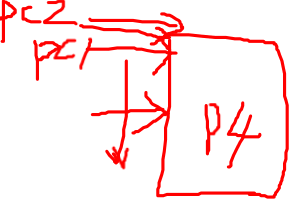 PC2
PC1
P4